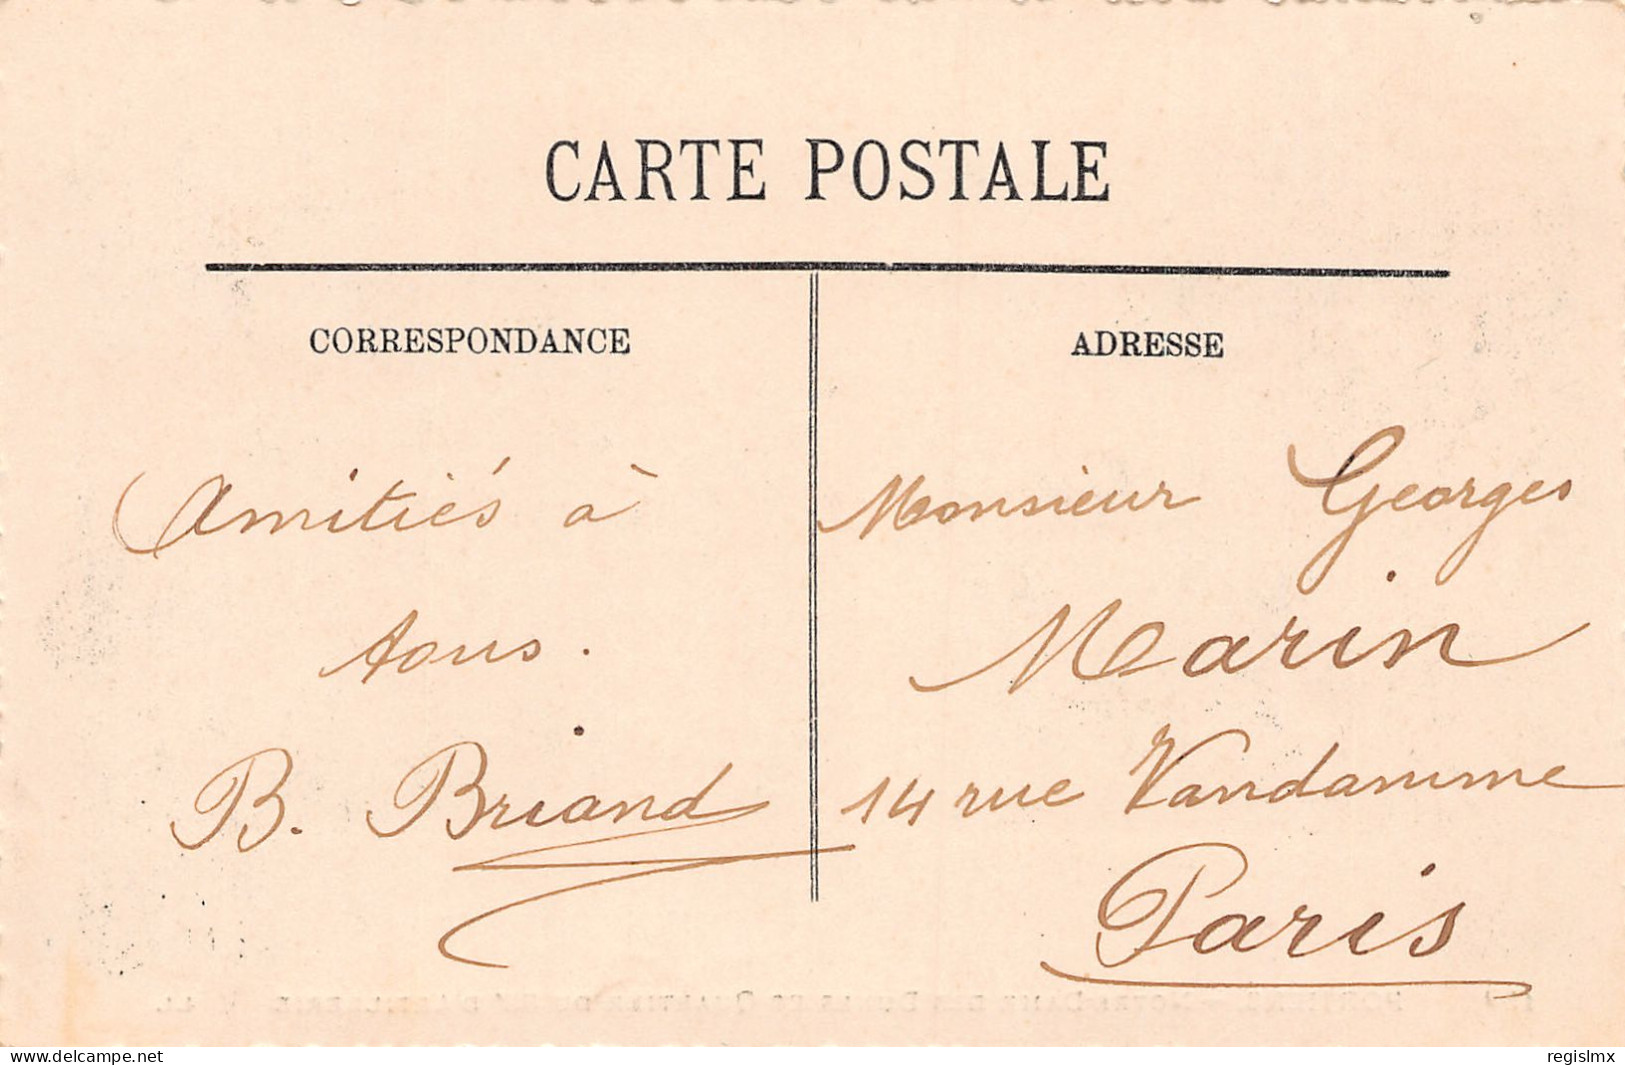 CARTE POSTALE
CORRESPONDANCE
ADRESSE
Amitiés à
tous.
B. Briand
Monsieur Georges
Marin
14 rue Vandamme
Paris
www.delcampe.net
regislmx